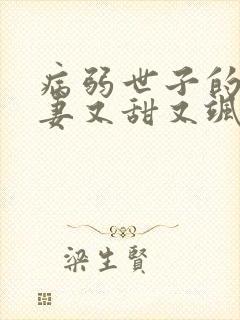 病弱世子的
妻又甜又飒
梁生賢